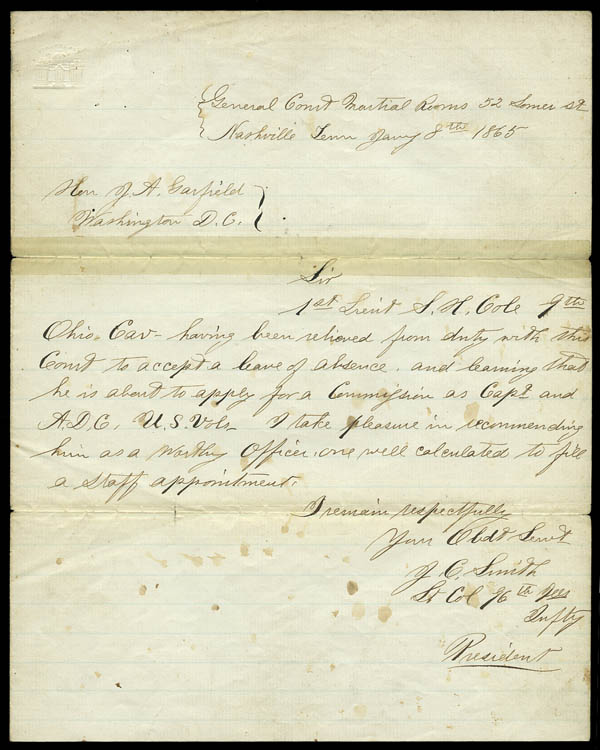 General Court Martial Rooms 52 Somer St
Nashville Tenn Jany 8th 1865
Hon J. A. Garfield
Washington D.C.
Sir
1st Lieut S. H. Cole 9th
Ohio Cav- having been relieved from duty with this
Court to accept a leave of absence, and learning that
he is about to apply for a Commission as Capt and
A.D.C. U.S. Vols- I take pleasure in recommending
him as a Worthy Officer, one well calculated to fill
a Staff appointment.
I remain respectfully
Your Obdt Servt
J C. Smith
Lt Col 96th Ills
Infty
President